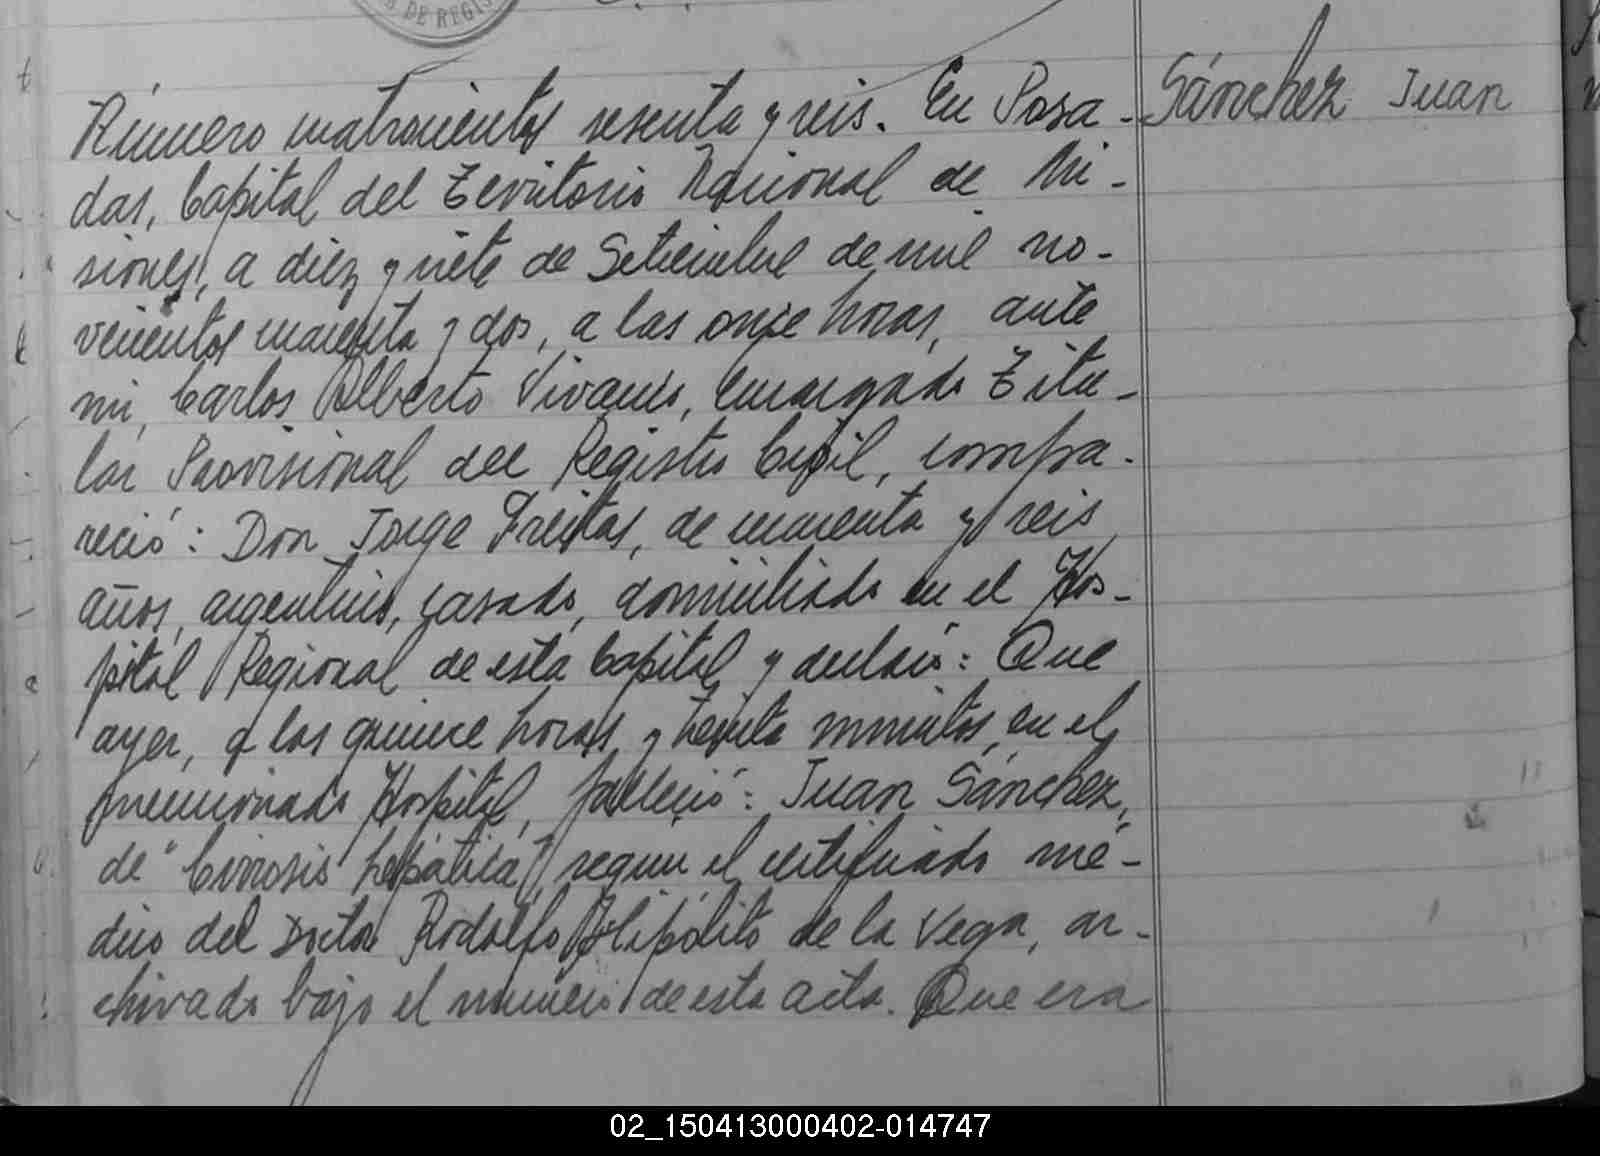 DE REGIS
Número cuatrocientos sesenta y seis. En Posa-
Sánchez Juan
das, Capital del Territorio Nacional de Mi-
siones, a diez y siete de Setiembre de mil no-
vecientos cuarenta y dos, a las once horas, ante
mi, Carlos Alberto Vivanco, Encargado Titu-
lar Provisional del Registro Civil, compa-
reció: Don Jorge Freitas, de cuarenta y seis
años, argentino, casado, domiciliado en el Hos-
pital Regional de esta Capital y declaró: Que
ayer, a las quince horas y treinta minutos, en el
mencionado Hospital, falleció: Juan Sánchez,
de "Cirrosis hepática", segun el certificado mé-
dico del Doctor Rodolfo Hipólito de la Vega, ar-
chivado bajo el número de esta acta. Que era
02_150413000402-014747